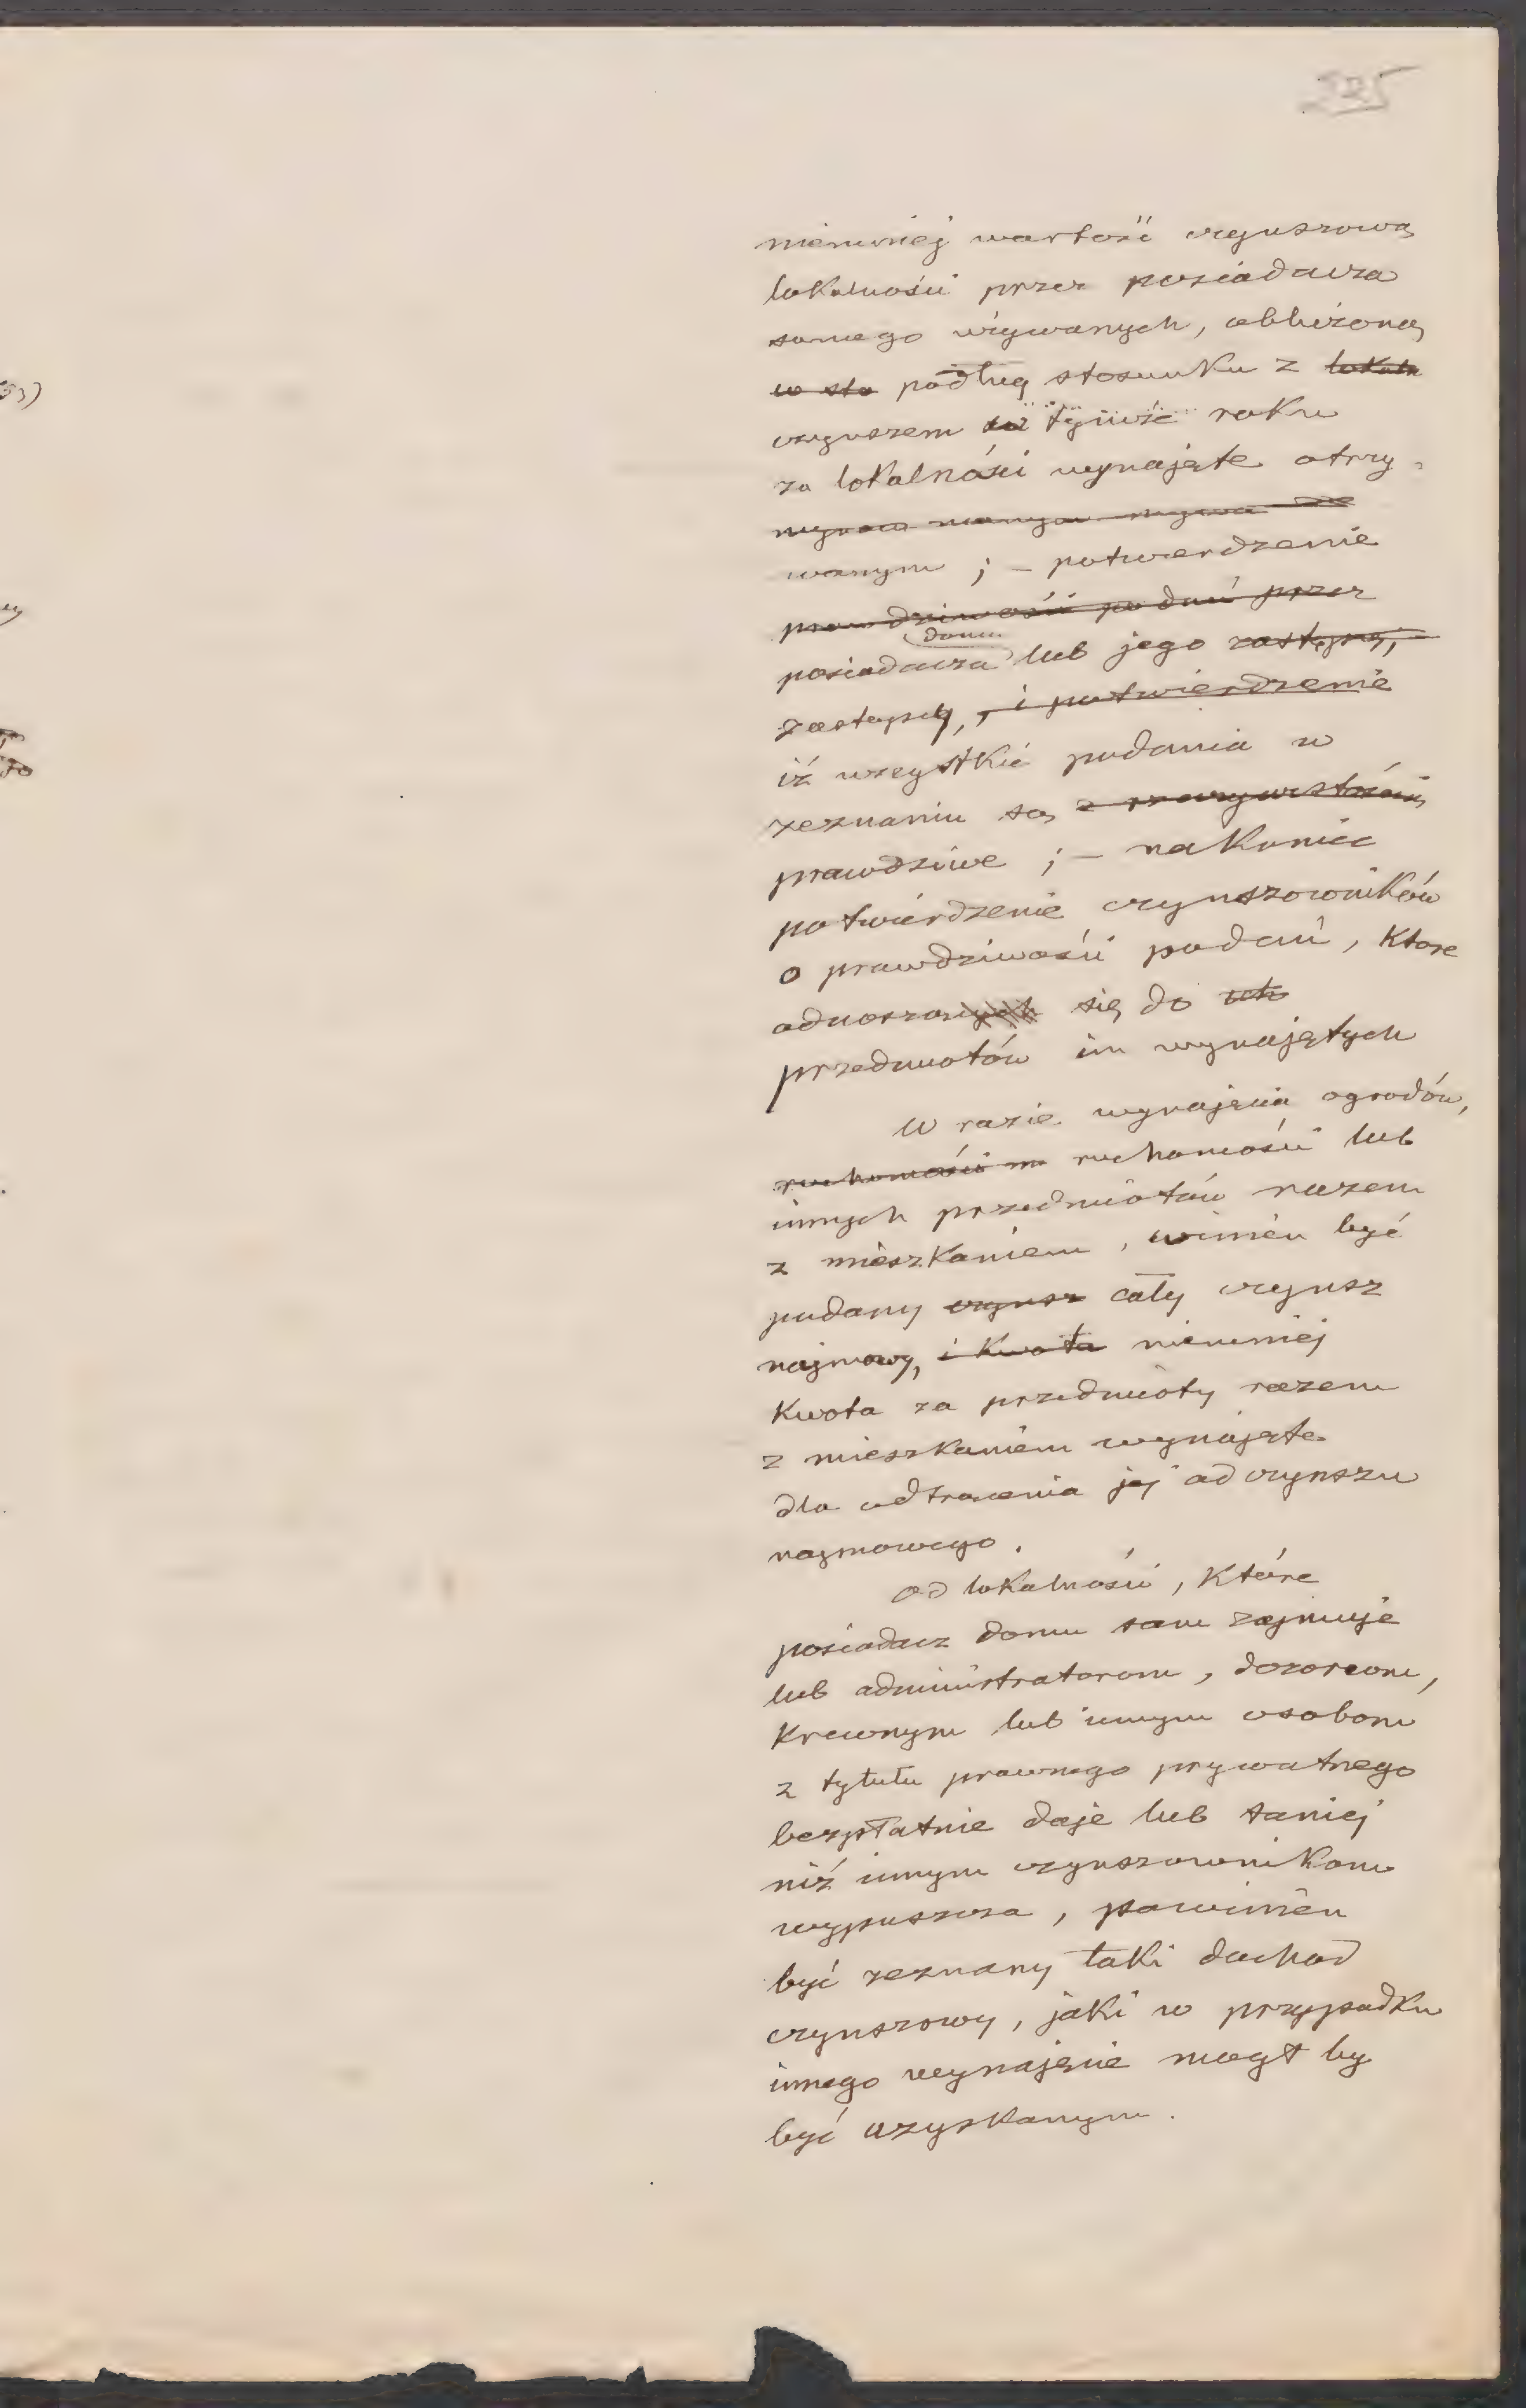 235
niemniej wartość czynszową
lokalności przez posiadacza
samego używanych, obliczoną
w sto podług stosunku z lokaln
czynszem w tymże roku
za lokalności wynajęte otrzy-
wanym ; – potwierdzenie
prawdziwości podań przez
posiadacza domu lub jego zastępcy,
zastępcy, , i potwierdzenie
iż wszystkie podania w
zeznaniu są z rzeczywistością
prawdziwe ; – nakoniec
potwierdzenie czynszowników
o prawdziwości podań, które
odnoszą się do ich
przedmiotów im wynajętych
W razie wynajęcia ogrodów,
ruchomości ruchomości lub
innych przedmiotów razem
z mieszkaniem, winien być
podany czynsz cały czynsz
najmowy, i kwota niemniej
kwota za przedmioty razem
z mieszkaniem wynajęte
dla odtrącenia jej od czynszu
najmowego.
Od lokalności, które
posiadacz domu sam zajmuje
lub administratorom, dozorcom,
krewnym lub innym osobom
z tytułu prawnego prywatnego
bezpłatnie daje lub taniej
niż innym czynszownikom
wypuszcza, powinien
być zeznany taki dochod
czynszowy, jaki w przypadku
innego wynajęcie mogł by
być uzyskanym.